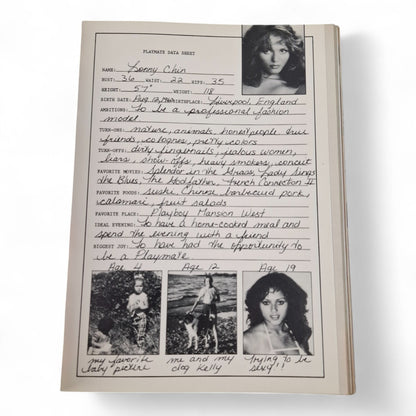 PLAYMATE DATA SHEET
NAME: Lonny Chin
BUST: 36 WAIST: 22 HIPS: 35
HEIGHT: 5'7" WEIGHT: 118
BIRTH DATE: Aug. 12, BIRTHPLACE: Liverpool, England
AMBITIONS: To be a professional fashion
model
TURN-ONS: nature, animals, honest people, true
friends, colognes, pretty colors
TURN-OFFS: dirty fingernails, jealous women,
liars, show-offs, heavy smokers, conceit
FAVORITE MOVIES: Splendor in the Grass, Lady Sings
the Blues, The Godfather, French Connection II
FAVORITE FOODS: sushi, Chinese, barbecued pork,
calamari, fruit salads
FAVORITE PLACE: Playboy Mansion West
IDEAL EVENING: To have a home-cooked meal and
spend the evening with a friend
BIGGEST JOY: To have had the opportunity to
be a Playmate
Age 4 Age 12 Age 19
my favorite
baby picture
me and my
dog Kelly
trying to be
sexy!!